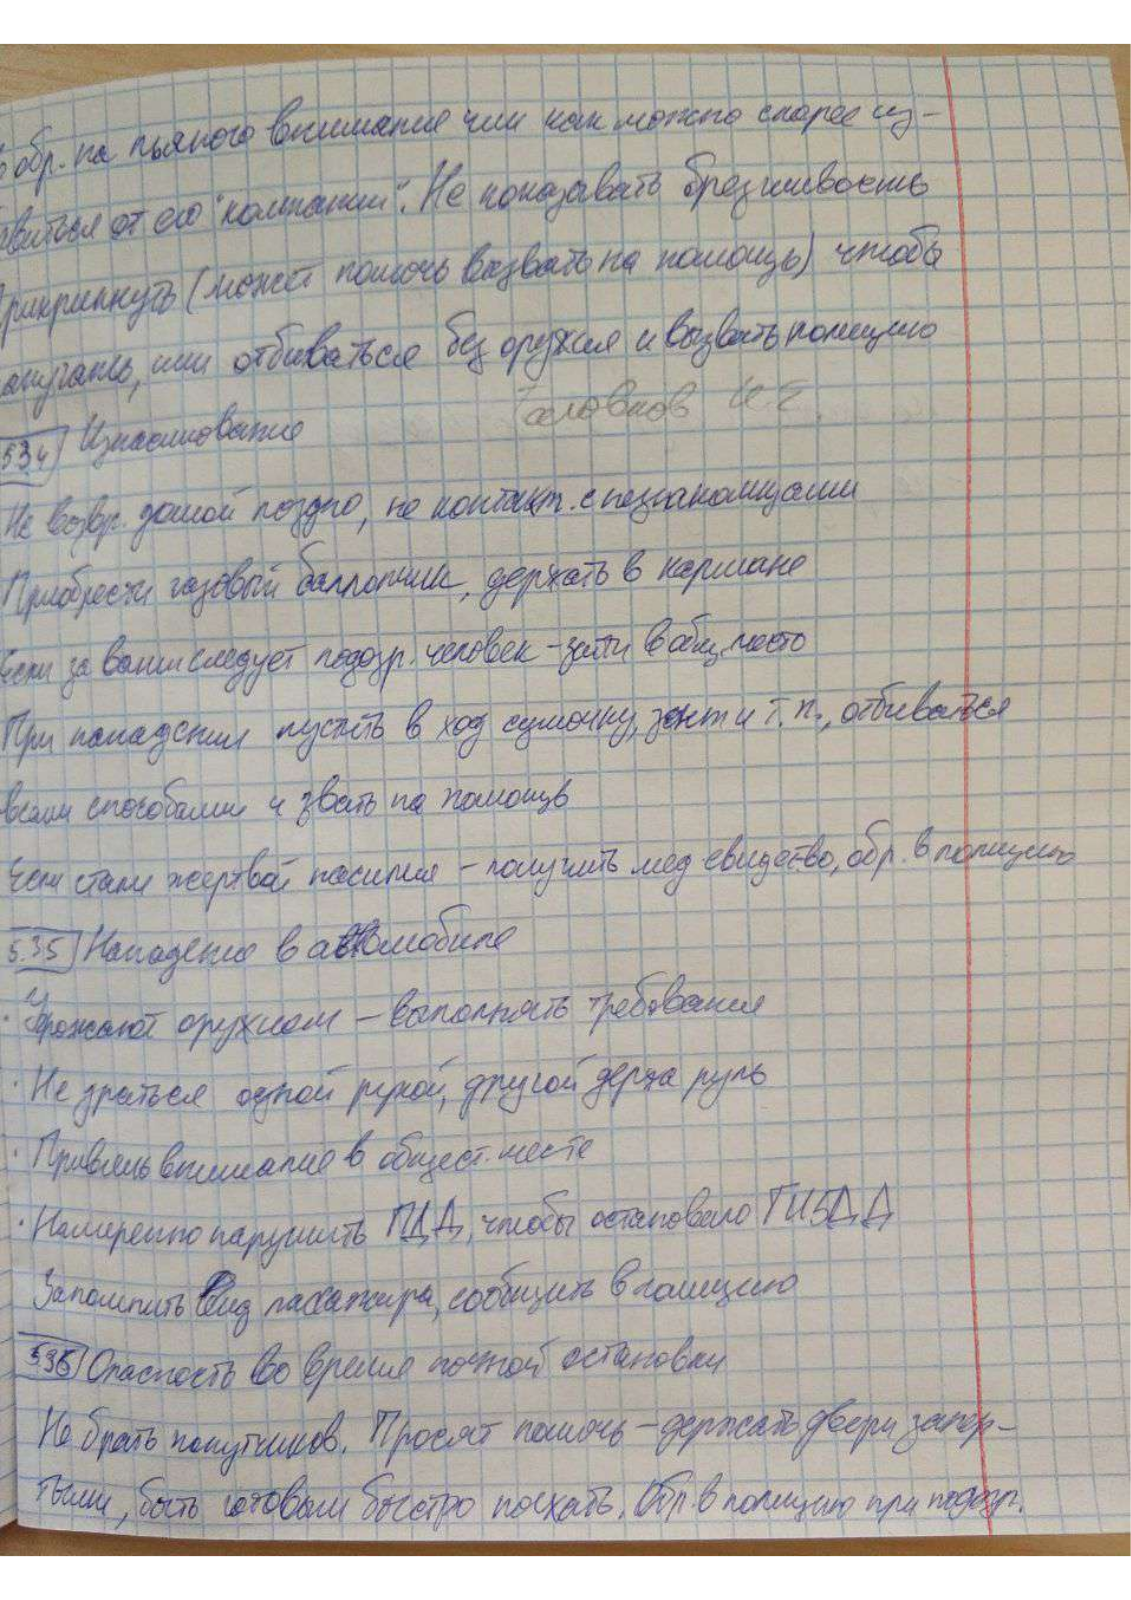 обр. на пьяного внимание или как можно скорее из-
виться от его "компании". Не показывать брезгливость
рикрикнуть (может помочь вызвать на помощь) чтобы
или отбиваться без оружия и вызвать полицию
Головков И.Е.
5.3.4 Изнасилование
Не возвр. домой поздно, не контакт. с незнакомцами
Приобрести газовый баллончик, держать в кармане
Если за вами следует подозр. человек - зайти в общ. место
При нападении пустить в ход сумочку, зонт и т.п., отбиваться
всеми способами и звать на помощь
Если стали жертвой насилия - получить мед свидетво, обр. в полицию
5.3.5 Нападение в автомобиле
· Угрожают оружием - выполнять требования
· Не драться одной рукой, другой держа руль
· Привлечь внимание в общест. месте
· Намеренно нарушить ПДД, чтобы остановало ГИБДД
Запомнить вид пассажира, сообщить в полицию
5.3.6 Опасность во время ночной остановки
Не брать попутчиков. Просят помочь - держать двери запер-
тыми, быть готовым быстро поехать. Обр. в полицию при подозр.